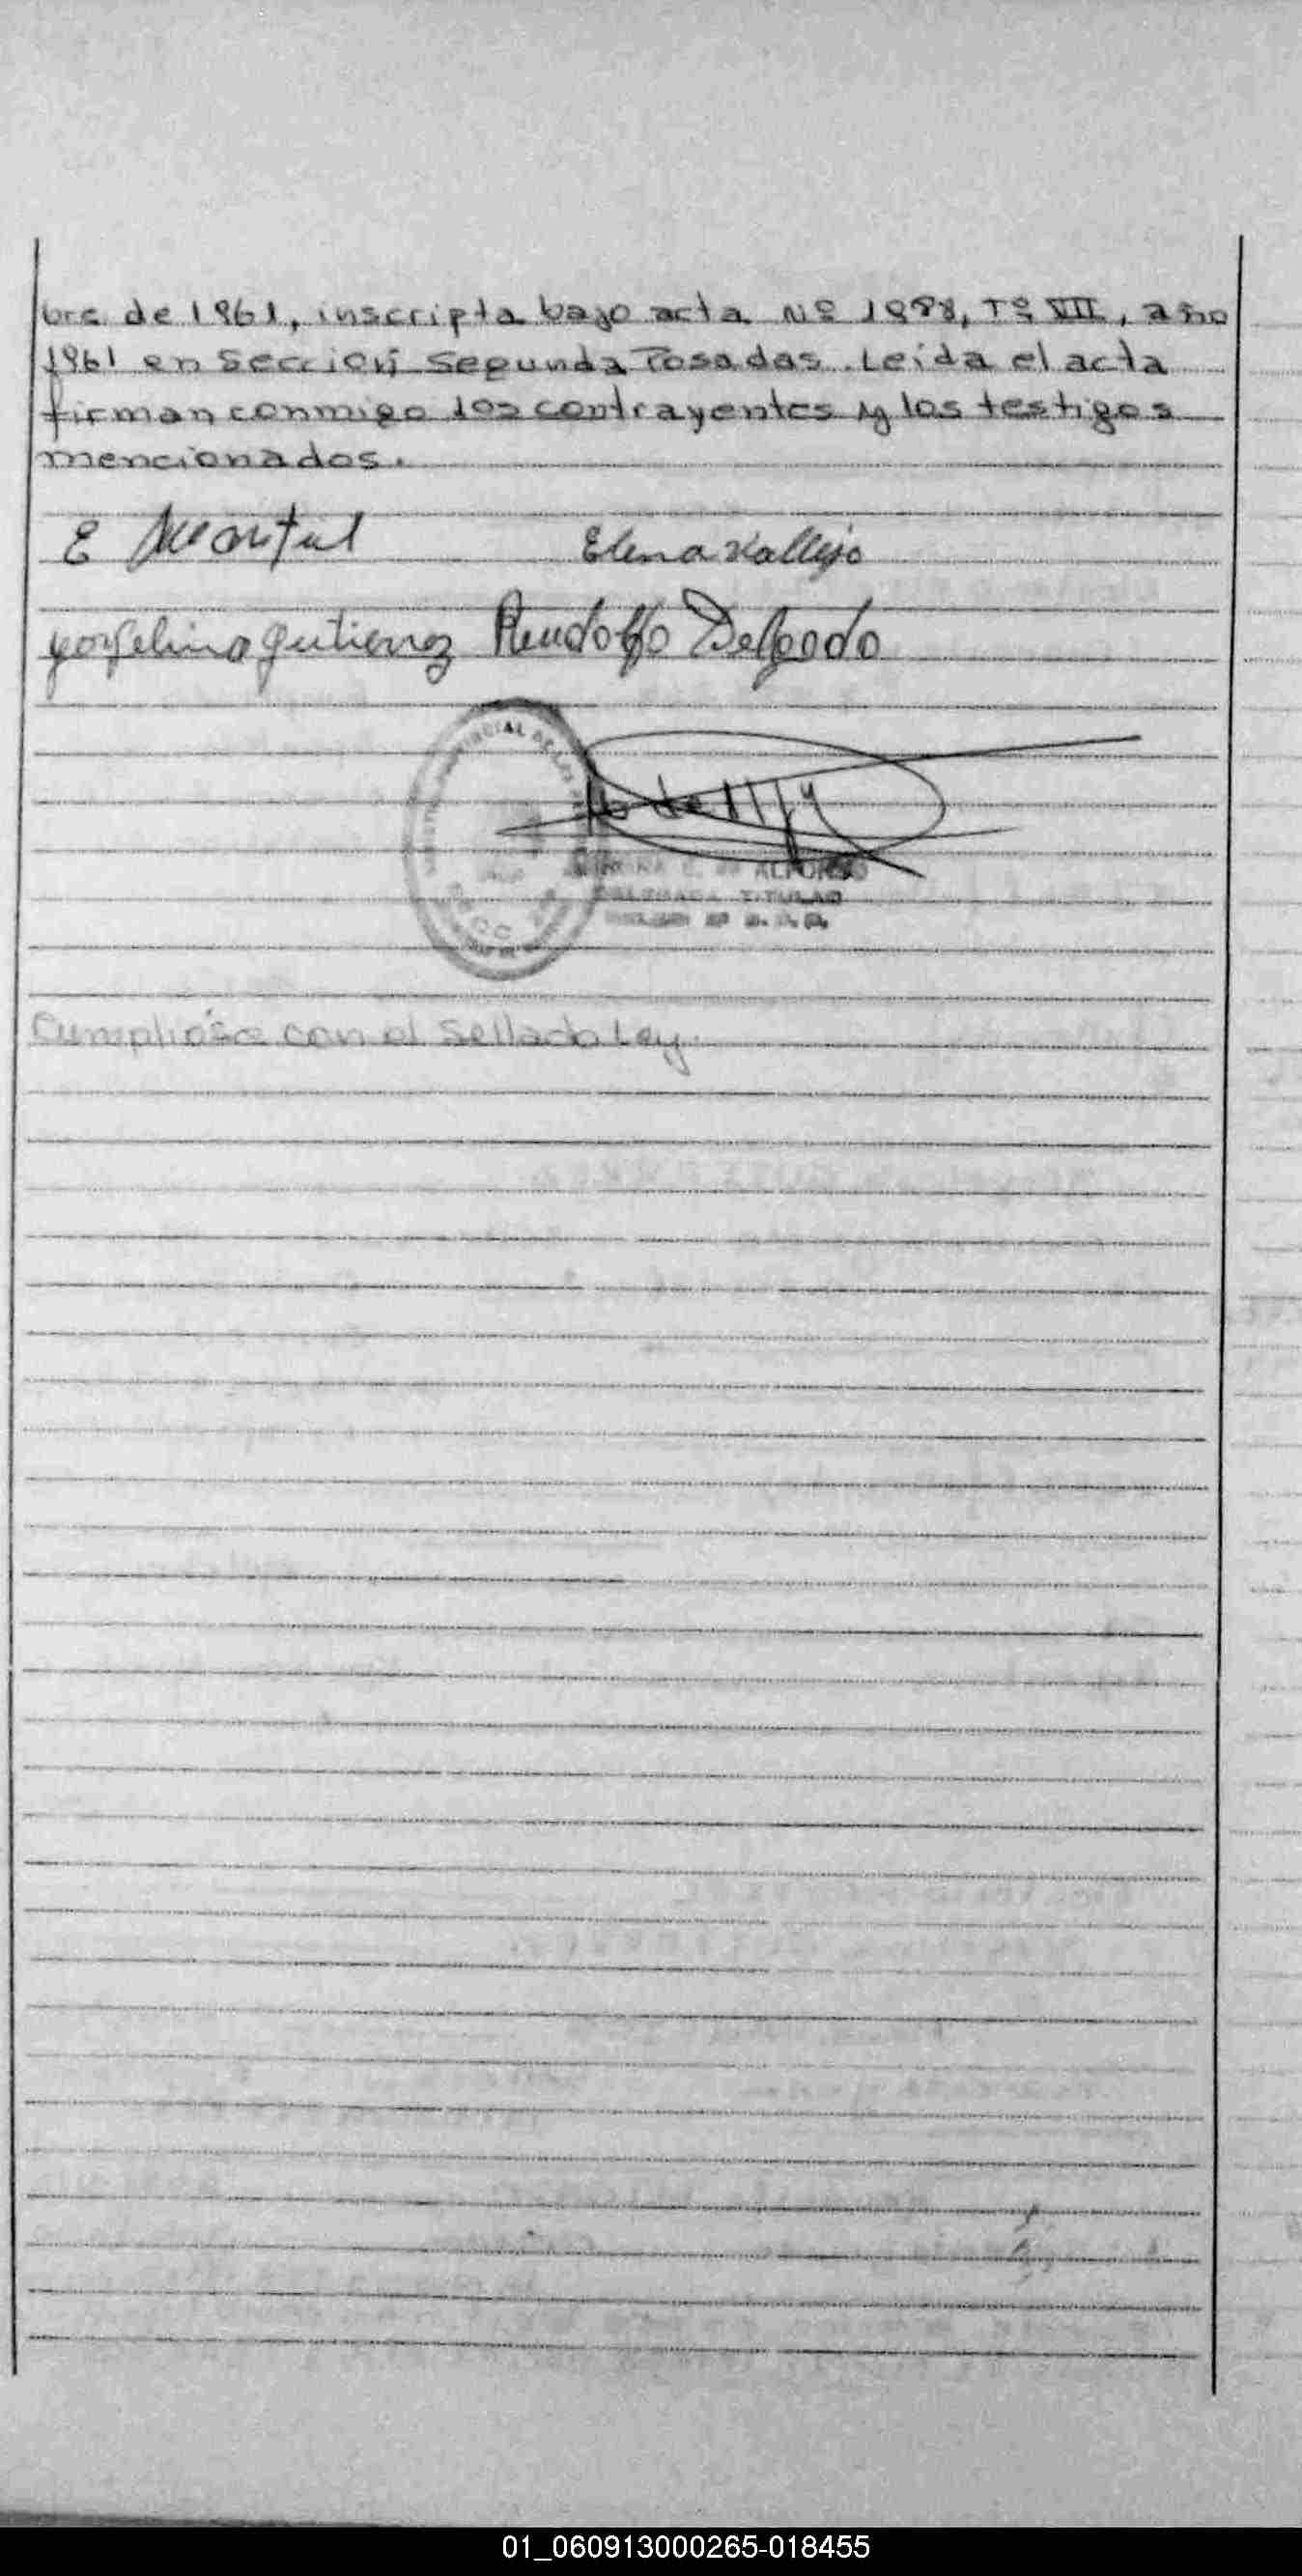 bre de 1961, inscripta bajo acta Nº 1988, Tº VII, año
1961 en Sección Segunda Posadas. Leída el acta
firman conmigo los contrayentes y los testigos
mencionados.
E Elena Vallejo
Gutierrez Rudolfo Delgado
ALFONSO
TITULAR
Cumplióse con el Sellado Ley.
01_060913000265-018455